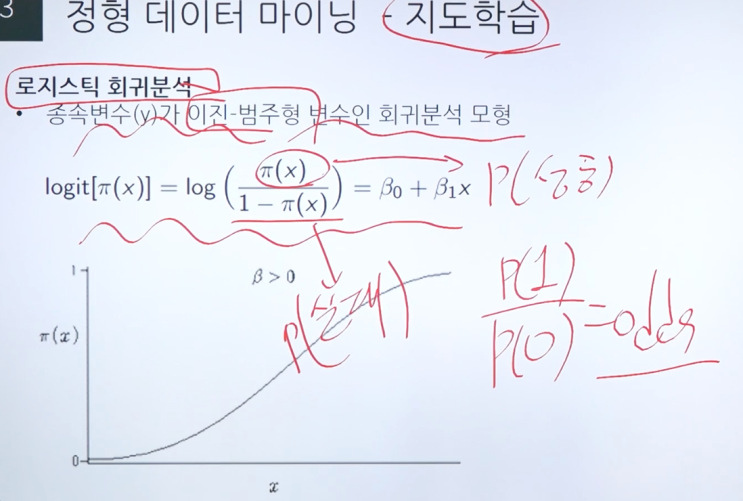 3
정형 데이터 마이닝 - 지도학습
로지스틱 회귀분석
• 종속변수(y)가 이진-범주형 변수인 회귀분석 모형
logit[π(x)] = log (π(x) / 1 − π(x)) = β₀ + β₁x P(성공)
1
β > 0
P(실패)
P(1) / P(0) = odds
π(x)
0
x